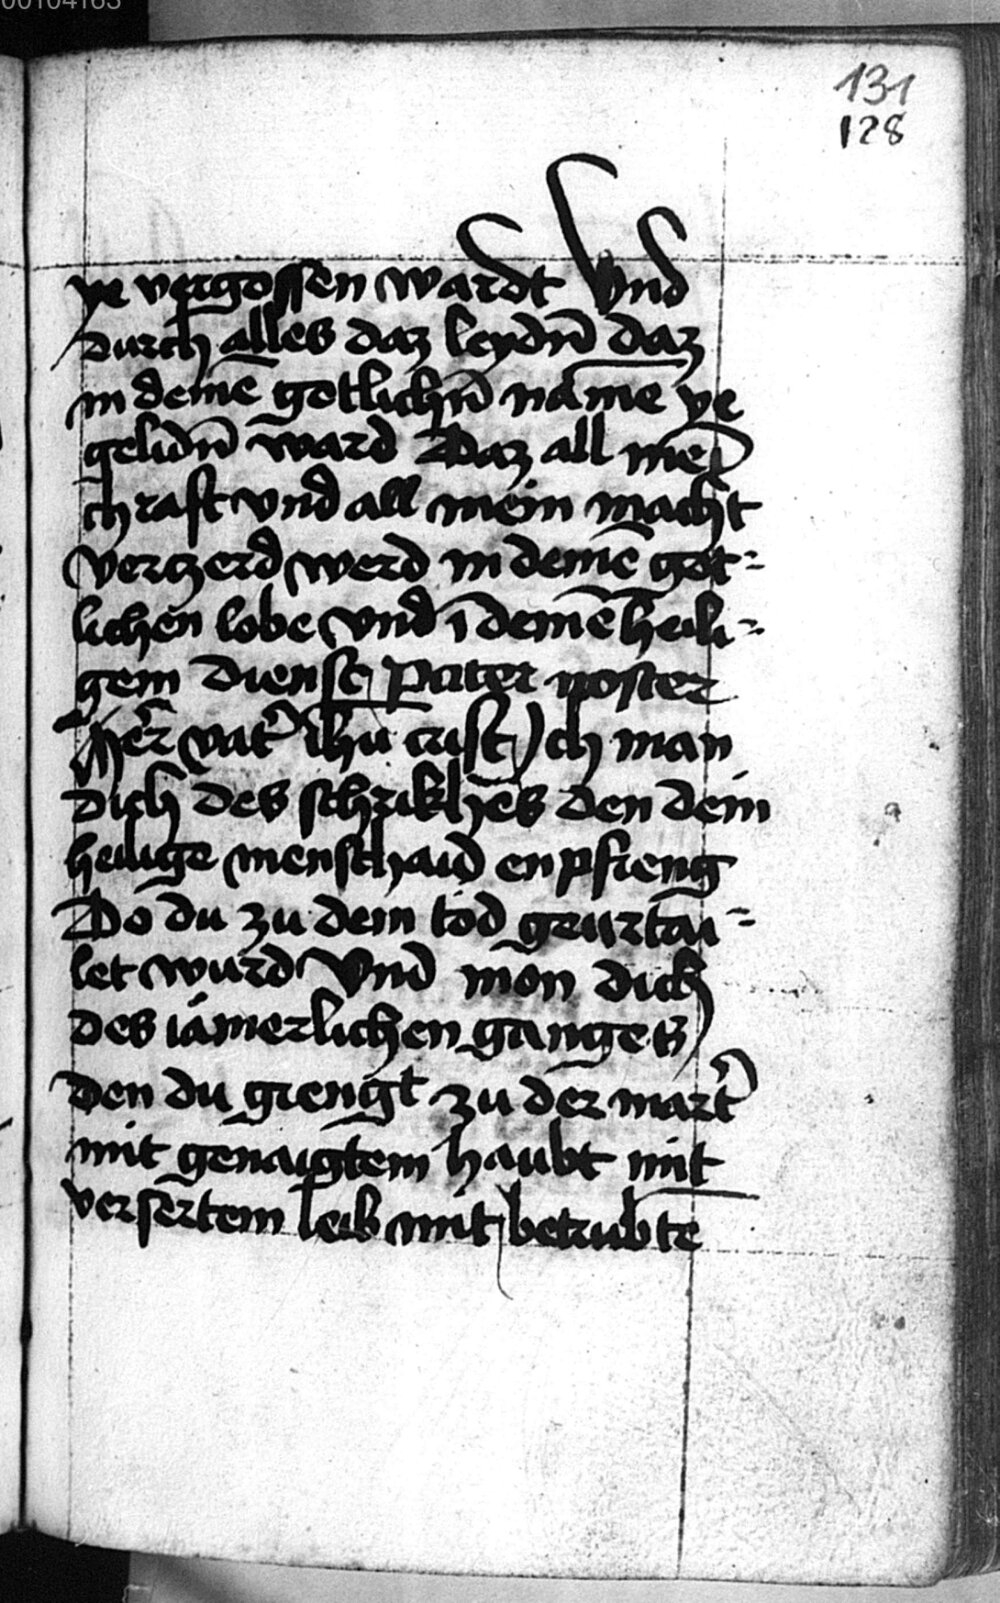 00104163
131
128
ye vergossen wardt Vnd
durch alles daz leydn̄ daz
in deinē gotlichn̄ name ye
gelidn̄ ward Daz all mei
chraft vnd all mein macht
verczerd werd in deinē got-
lichen lobe vnd ī deinē heili-
gem dienst Pater noster
Her̄ vat̄ ihū crist Ich man
dich des schrikhēs den dein
heilige menschaid enpfieng
Do du zu dem tod geurtai-
let wurd Vnd mon dich
des iámerlichen gangetz
Den du giengt zu der mart̄
mit genaigtem haubt mit
versertem leib mit betrubtē